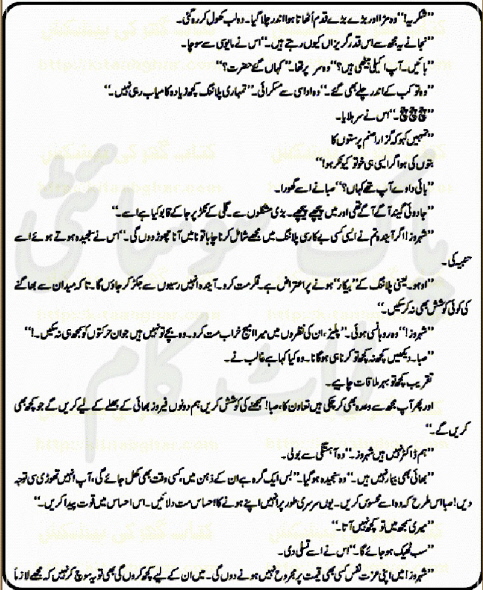 "شکریہ!" وہ مڑا اور بڑے بڑے قدم اُٹھاتا ہوا اندر چلا گیا۔ وہ لب کھول کر رہ گئی۔
"نجانے یہ مجھ سے اس قدر گریزاں کیوں رہتے ہیں۔" اس نے مایوسی سے سوچا۔
"ہائیں۔ آپ اکیلی بیٹھی ہیں؟" وہ سر پر تھا۔ "کہاں گئے حضرت؟"
"وہ تو کب کے اندر چلے بھی گئے۔" وہ اداسی سے مسکرائی۔ "تمہاری پلاننگ کچھ زیادہ کامیاب رہی نہیں۔"
"چچ چچ۔" اس نے سر ہلایا۔
"تمہیں کہو کہ گزارا صنم پرستوں کا
بتوں کی ہو اگر ایسی ہی خو تو کیونکر ہو!"
"بائی دا وے آپ تھے کہاں؟" صبا نے اسے گھورا۔
"چار وئی گیند آگے آگے تھی اور میں پیچھے پیچھے۔ بڑی مشکلوں سے گلی کے نکڑ پر جا کے قابو کیا ہے اسے۔"
"شہروز! اگر آئندہ تم نے ایسی کسی بے کار سی پلاننگ میں مجھے شامل کرنا چاہا تو نا میں آنا چھوڑ دوں گی۔" اس نے سنجیدہ ہوتے ہوئے اسے
تنبیہ کی۔
"اوہو۔ یعنی پلاننگ کے "بیکار" ہونے پر اعتراض ہے۔ فکر مت کرو۔ آئندہ انہیں رسیوں سے جکڑ کر جاؤں گا۔ تاکہ میدان سے بھاگنے
کی کوئی کوشش بھی نہ کر سکیں۔"
"شہروز!" وہ روہانسی ہوئی۔ "پلیز، ان کی نظروں میں میرا امیج خراب مت کرو۔ وہ بچے تو نہیں ہیں جو ان حرکتوں کو سمجھ ہی نہ سکیں۔!"
"صبا۔ دیکھیں کچھ نہ کچھ تو کرنا ہی ہوگا نا۔ وہ کیا کہا ہے غالب نے۔
تقریب کچھ تو بہر ملاقات چاہیے۔
اور پھر آپ مجھ سے وعدہ بھی کر چکی ہیں تعاون کا، صبا! سمجھنے کی کوشش کریں ہم دونوں فیروز بھائی کے بھلے کے لیے کریں گے جو کچھ بھی
کریں گے۔"
"ہم ڈاکٹر نہیں ہیں شہروز۔" وہ آہستگی سے بولی۔
"بھائی بھی بیمار نہیں ہیں۔" وہ سنجیدہ ہو گیا۔ "بس ایک گرہ ہے ان کے ذہن میں کسی وقت بھی کھل جائے گی، آپ انہیں تھوڑی سی توجہ
دیں! صبا اس طرح کہ وہ اسے محسوس کریں۔ یوں سرسری طور پر انہیں اپنے ہونے کا احساس مت دلائیں۔ اس احساس میں قوت پیدا کریں۔"
"میری سمجھ میں تو کچھ نہیں آتا۔"
"سب ٹھیک ہو جائے گا۔" اس نے اسے تسلی دی۔
"شہروز! میں اپنی عزت نفس کسی بھی قیمت پر مجروح نہیں ہونے دوں گی۔ میں ان کے لیے کچھ کروں گی بھی تو یہ سوچ کر نہیں کہ مجھے لازماً
پاک سوسائٹی
ڈاٹ کام
کتاب گھر کی پیشکش
http://kitaabghar.com